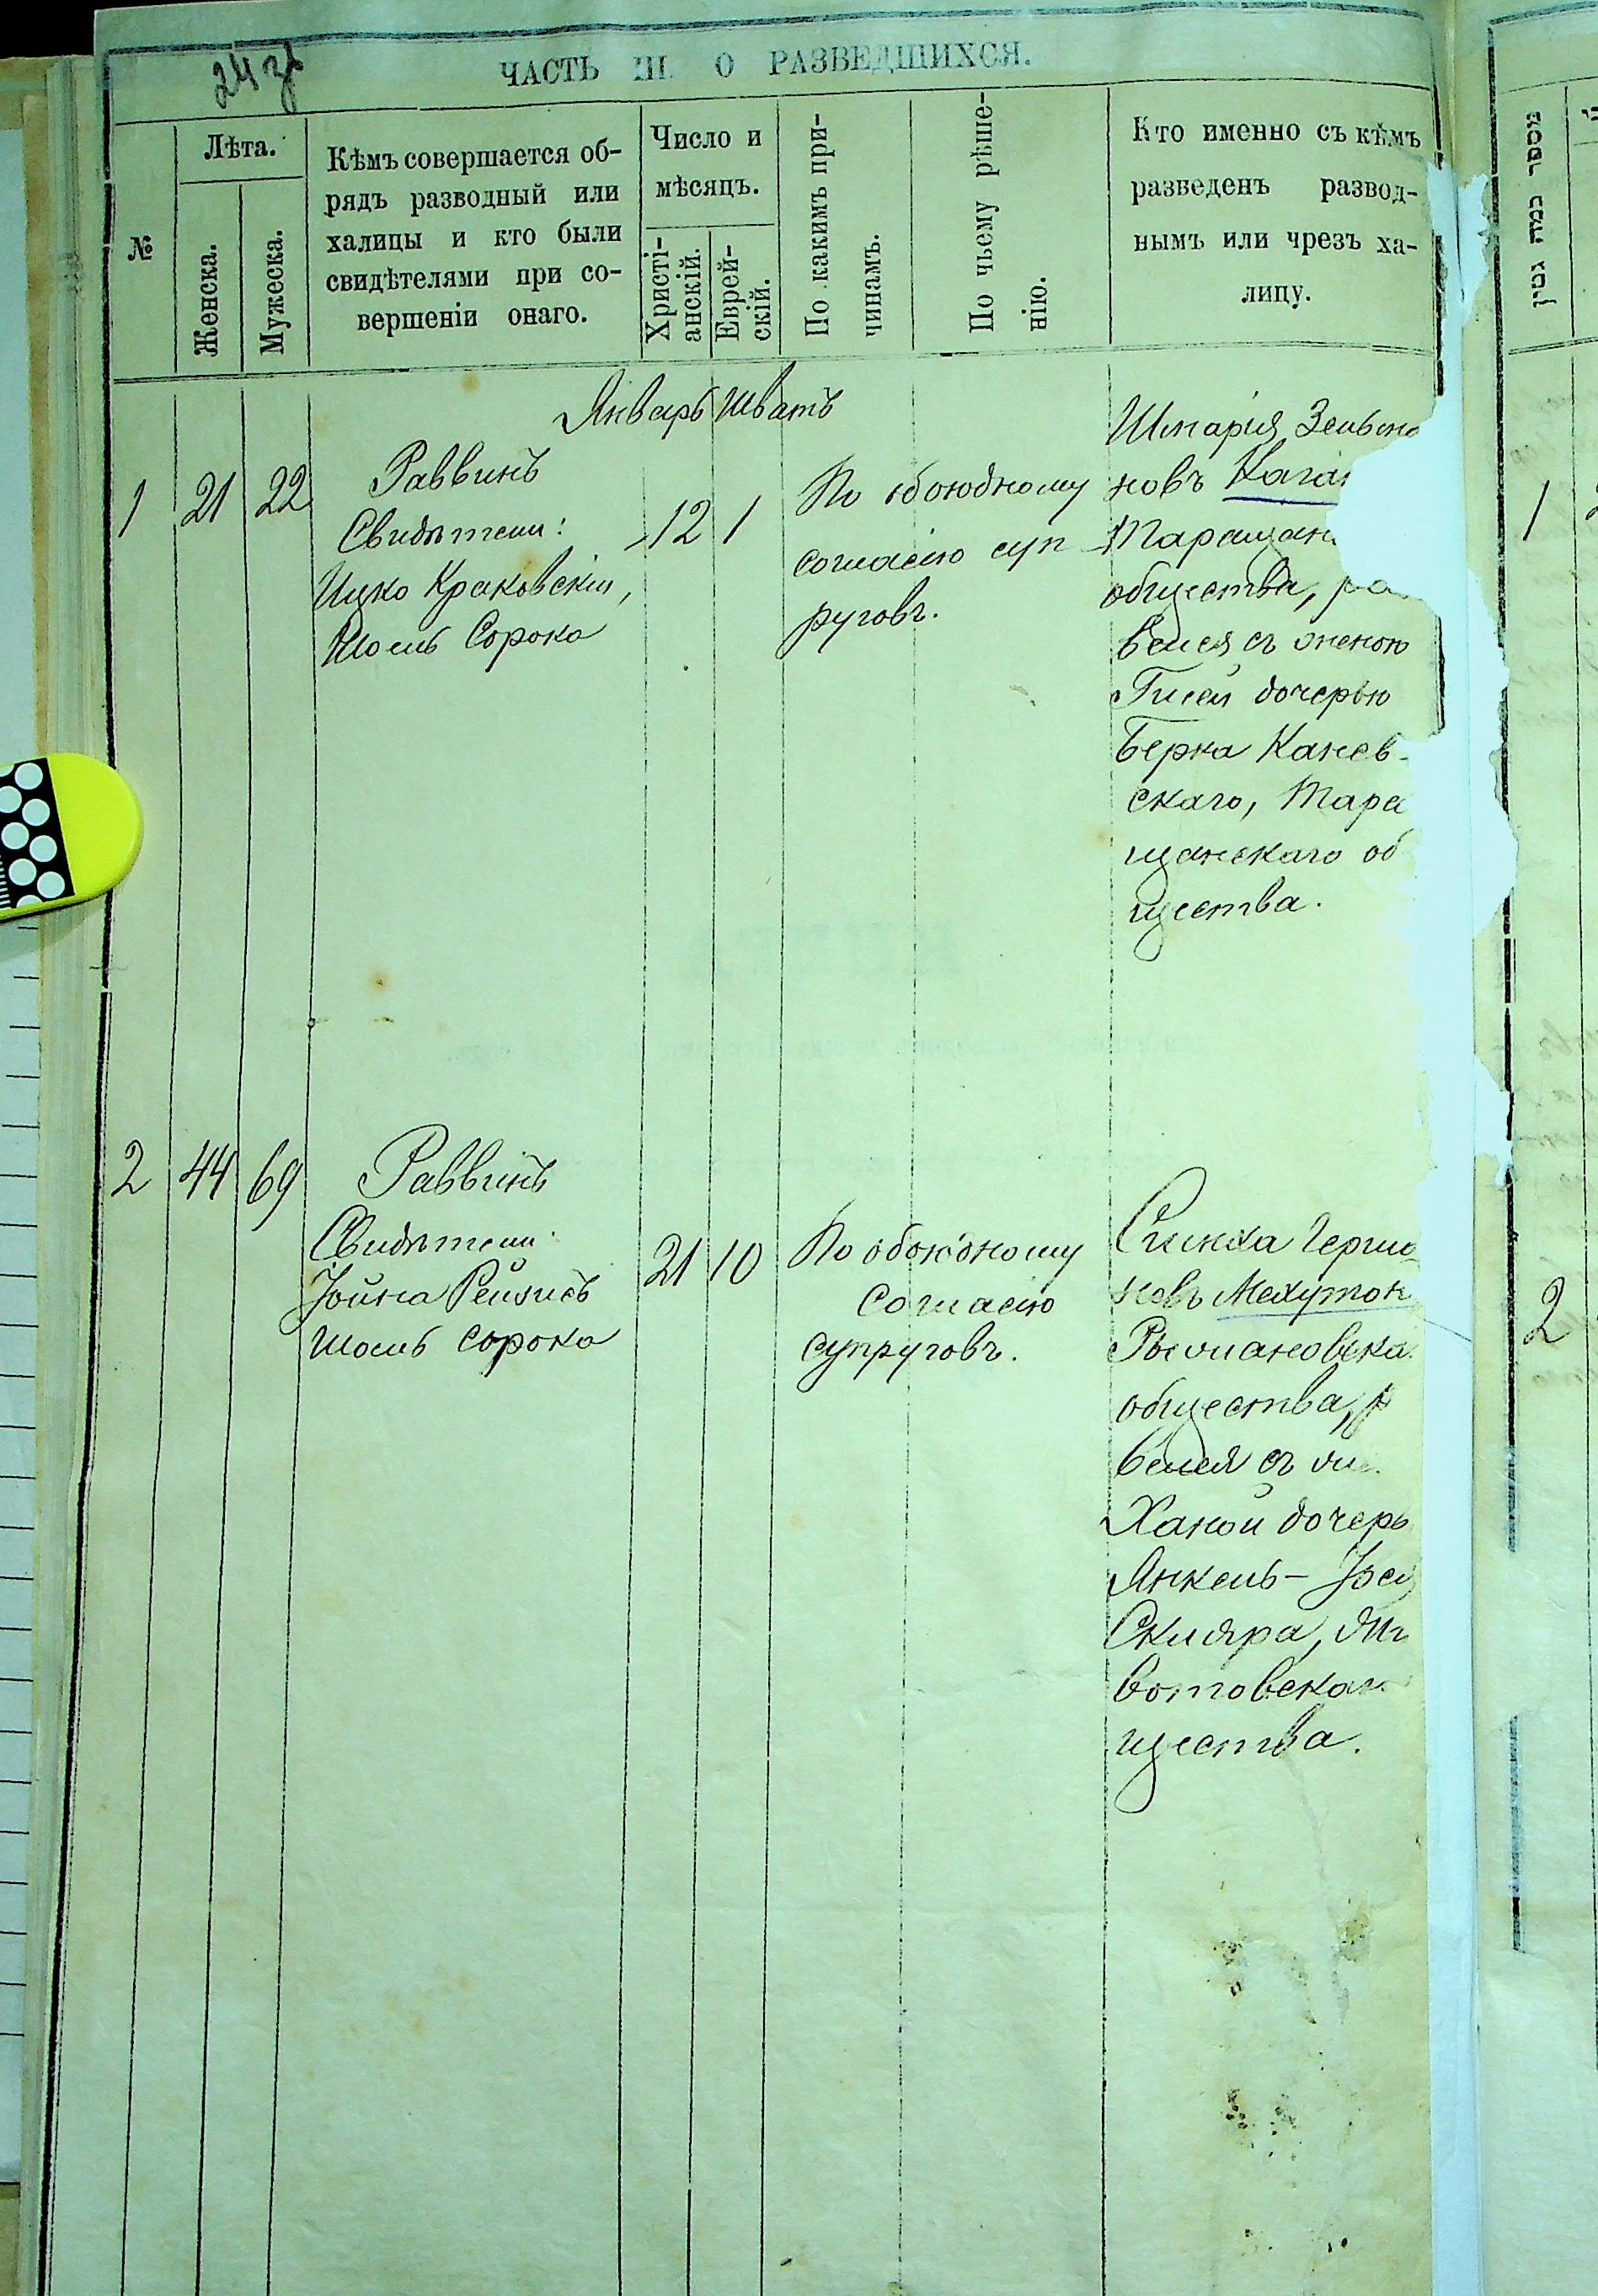 24 зв
ЧАСТЬ III. О РАЗВЕДШИХСЯ.
№
Лѣта.
Женска.
Мужеска.
Кѣмъ совершается об-
рядъ разводный или
халицы и кто были
свидѣтелями при со-
вершеніи онаго.
Число и
мѣсяцъ.
Христі-
анскій.
Еврей-
скій.
По какимъ при-
чинамъ.
По чьему рѣше-
нію.
Кто именно съ кѣмъ
разведенъ развод-
нымъ или чрезъ ха-
лицу.
Январь Шватъ
1 21 22
Раввинъ
Свидѣтели:
Ицко Краковскій,
Шоель Сорока
12 1
По обоюдному
согласію суп
руговъ.
Шмарія Зельма
новъ Каган
Таращан
общества, ра
велся съ женою
Гисей дочерью
Берка Канев-
скаго, Тара
щанскаго об
щества.
2 44 69
Раввинъ
Свидѣтели
Іойна Рейзисъ
Шоель Сорока
21 10
По обоюдному
согласію
супруговъ.
Симха Гершо
новъ Мехутон
общества, р
велся съ
Ханой дочерь
Янкель-
Скляра,
вотовскаго
щества.
מספר כמה גטין
1
2